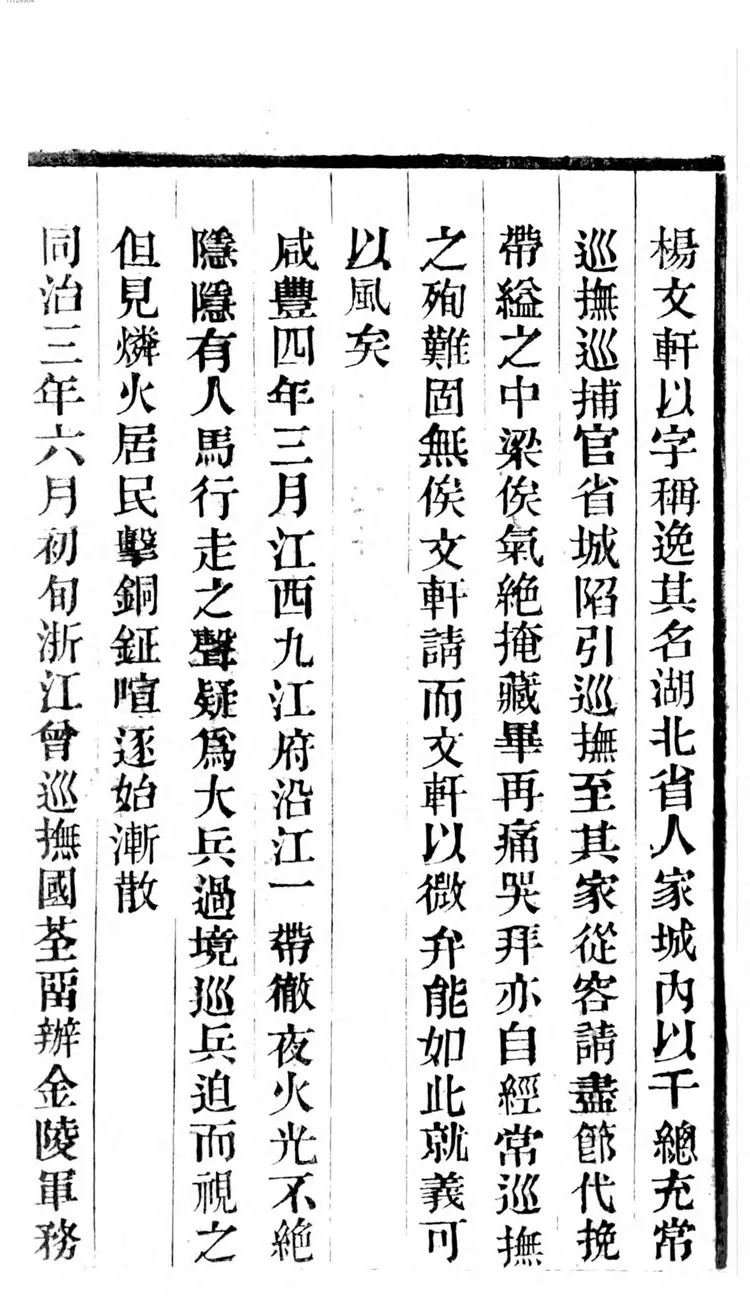 楊文軒以字稱逸其名湖北省人家城內以千總充常
巡撫巡捕官省城陷引巡撫至其家從容請盡節代挽
帶縊之中梁俟氣絶掩藏畢再痛哭拜亦自經常巡撫
之殉難固無俟文軒請而文軒以微弁能如此就義可
以風矣
咸豐四年三月江西九江府沿江一帶徹夜火光不絕
隱隱有人馬行走之聲疑爲大兵過境廵兵迫而視之
但見燐火居民擊銅鉦喧逐始漸散
同治三年六月初旬浙江曾巡撫國荃畱辦金陵軍務